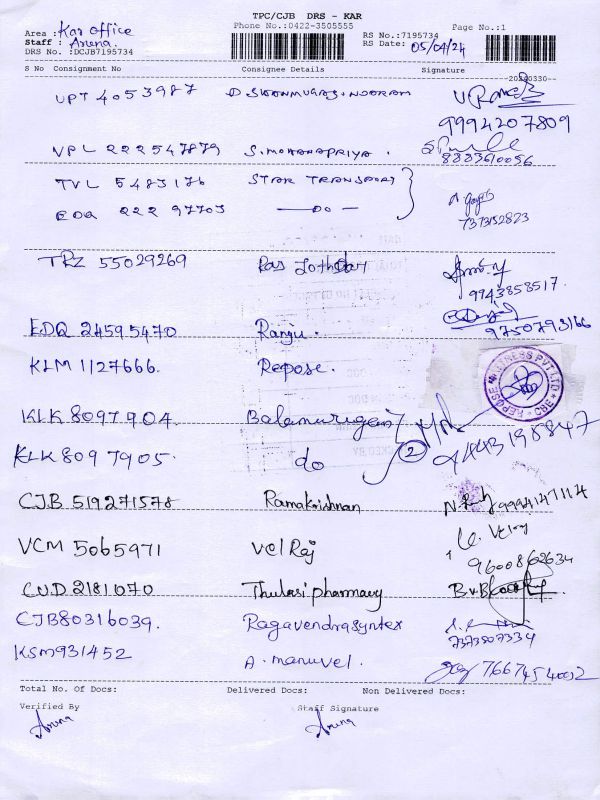 TPC/CJB DRS - KAR
Phone No.:0422-3505555
Page No.:1
Area : Kar office
Staff : Aruna.
DRS No. :DCJB7195734
RS No.:7195734
RS Date: 05/04/24
S No Consignment No Consignee Details Signature
20240330
UPT 4053987 D. SHANMUGASUNDARAM 9994207809
VPL 222547879 S. MOHANAPRIYA . 8883610056
TVL 5483176 STAR TRANSPORT
EDQ 222 97703 DO 7373152823
TRZ 55029269 Ras 9943858517.
EDQ 24595470 Ranju . 9750793166
KLM 1127666. Repose .
REPOSE MATTRESS PVT LTD
KLK 8097904 Balamurigan
KLK 8097905. do 2
CJB 519271578 Ramakrishnan 9994147114
VCM 5065971 Vel Raj 9600862634
CUD 2181070 Thulasi pharmacy
CJB80316039. Ragavendrasyntex 7373507334
KSM931452 A. manuvel. 7667454002
Total No. Of Docs: Delivered Docs: Non Delivered Docs:
Verified By Staff Signature
Aruna Aruna